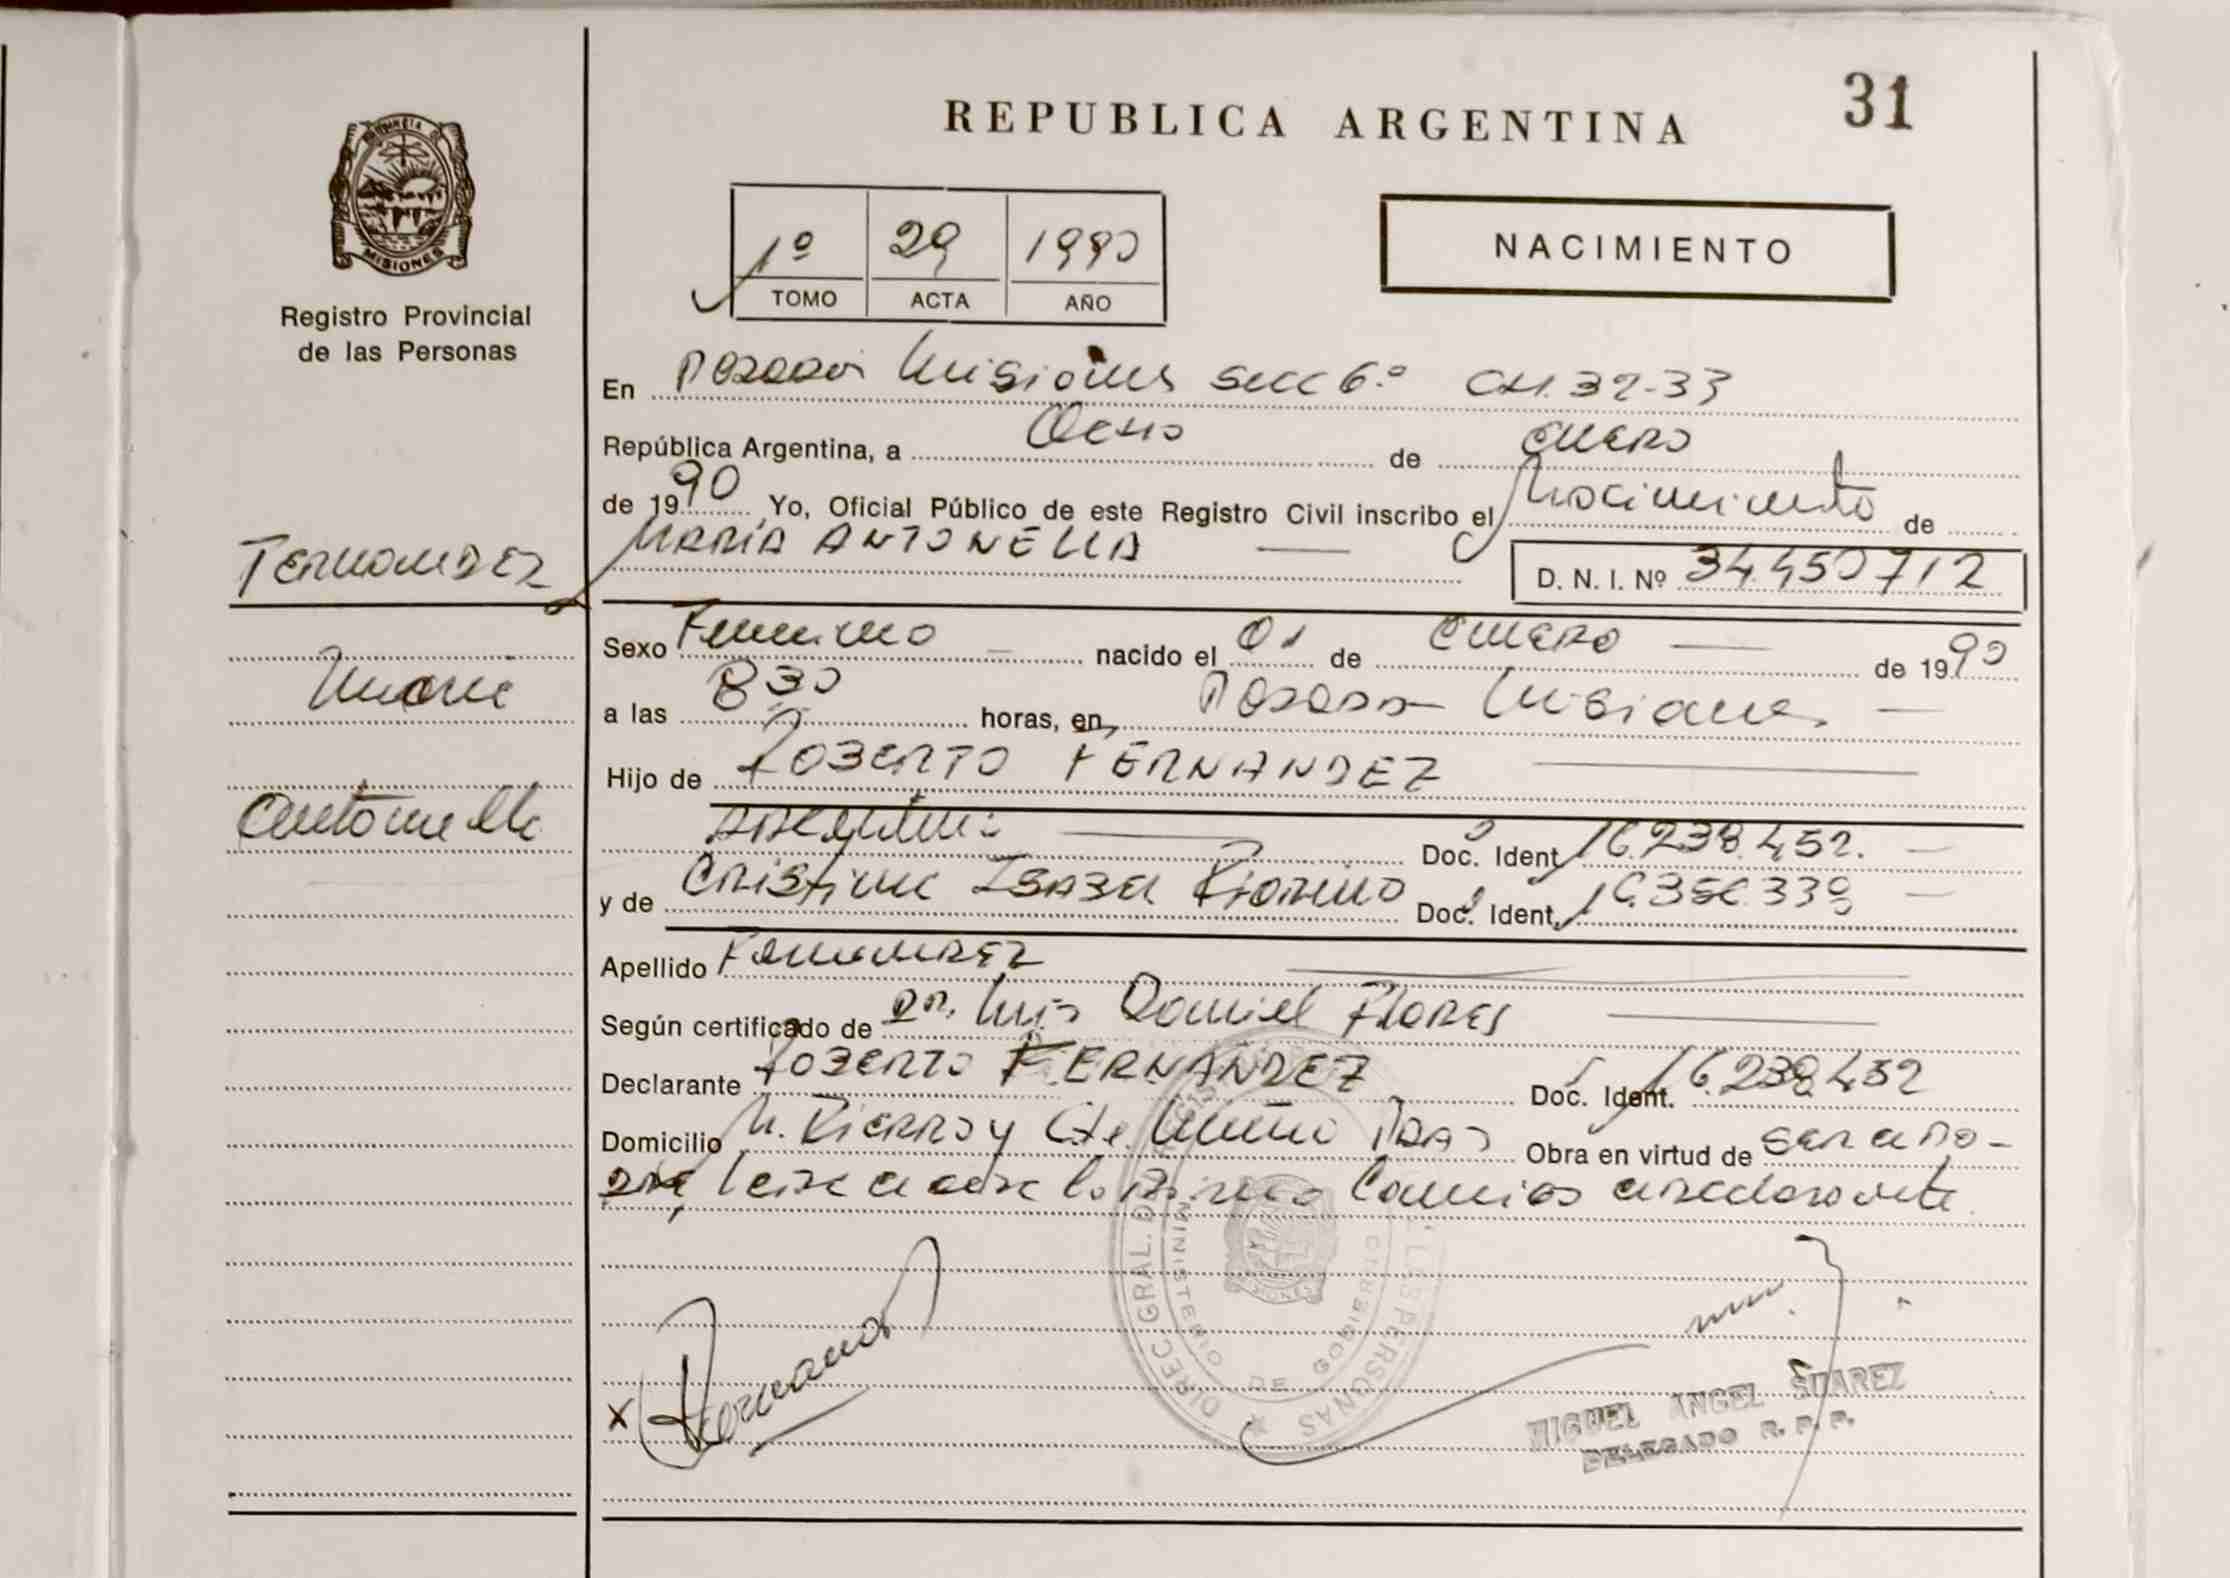 REPUBLICA ARGENTINA
31
PROVINCIA DE
MISIONES
Registro Provincial
de las Personas
1º 29 1990
TOMO ACTA AÑO
NACIMIENTO
En Posadas Misiones secc 6.º CH. 32-33
República Argentina, a Ocho de Enero
de 1990 Yo, Oficial Público de este Registro Civil inscribo el Nacimiento de
MARIA ANTONELLA
D. N. I. Nº 34.450712
Fernandez
Maria
Antonella
Sexo Femenino nacido el 01 de Enero de 1990
a las 8 30 horas, en Posadas Misiones
Hijo de ROBERTO FERNANDEZ
Argentino Doc. Ident. 16.238.452.
y de Cristina Isabel Doc. Ident.
Apellido Fernandez
Según certificado de Dr. Luis Daniel Flores
Declarante ROBERTO FERNANDEZ Doc. Ident. 16.238.452
Domicilio Obra en virtud de ser el Pa-
dre
DIREC. GRAL. DE REGISTRO DE LAS PERSONAS
MINISTERIO DE GOBIERNO
x Fernandez
MIGUEL ANGEL SUAREZ
DELEGADO R. P. P.